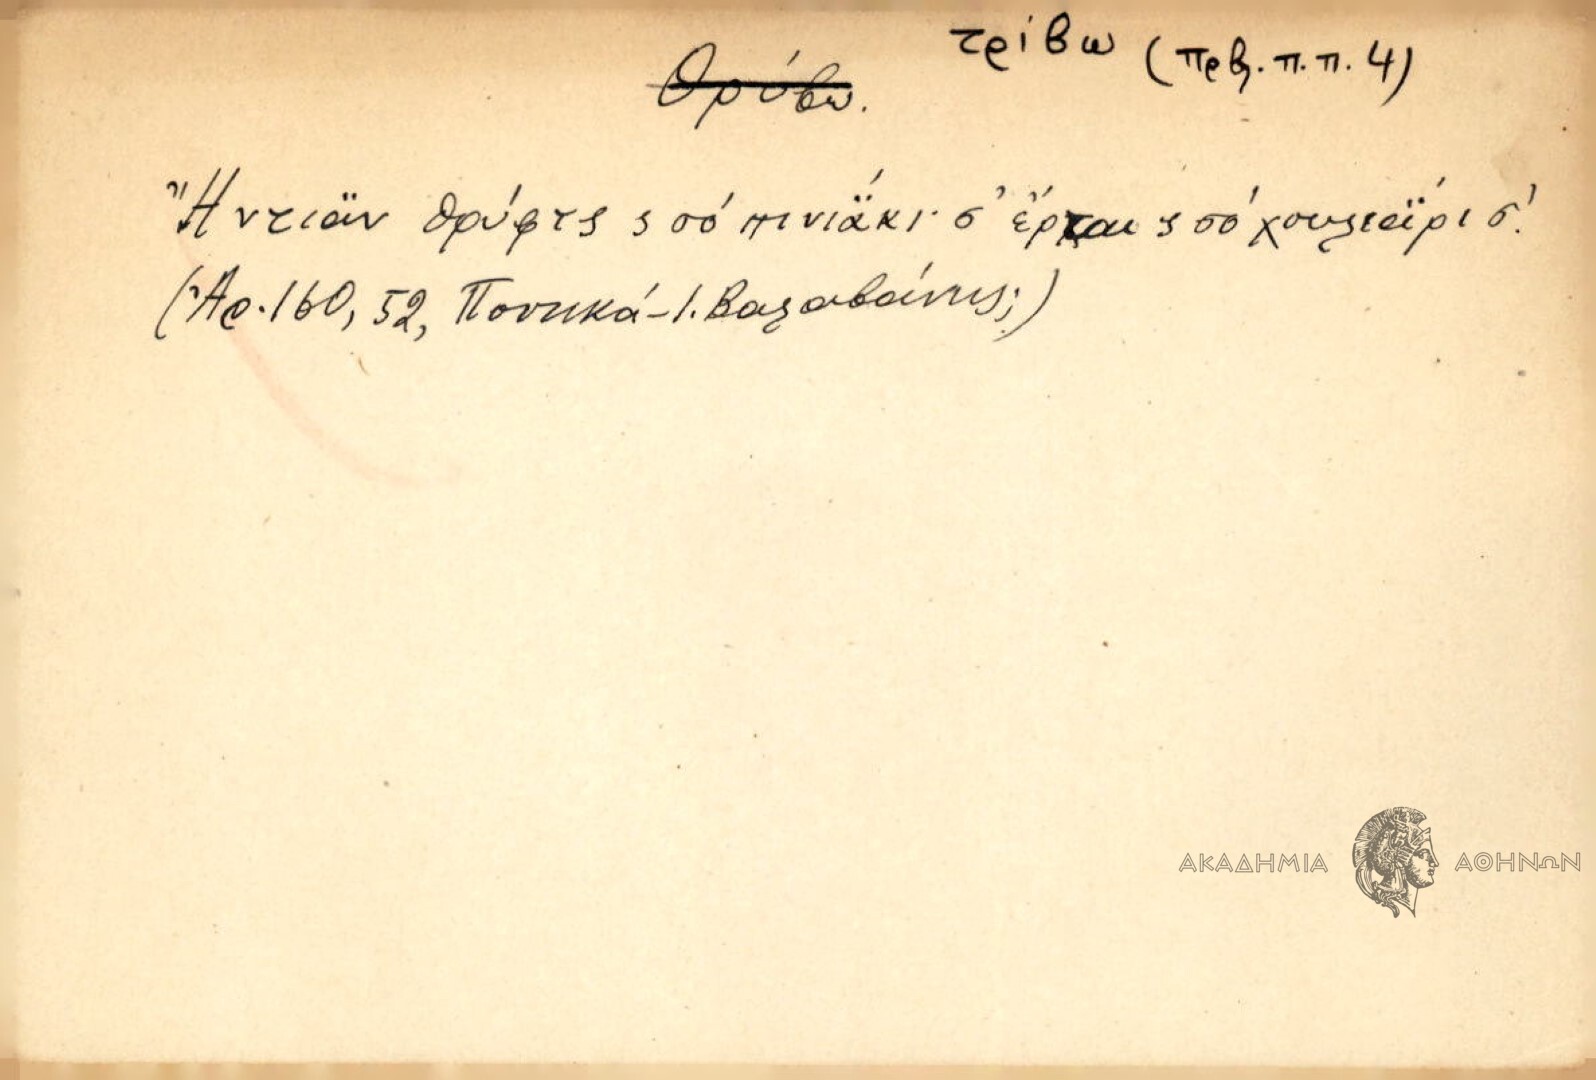 τρίβω (πρβλ. π.π. 4)
Θρύβω.
Ἤ ντιἂν θρύφτς ς σό πινιἄκι σ' ἔρται ς σό χουλιἄρι σ'.
(Ἀρ. 160, 52, Ποντικά - Ι. Βαλαβάνης;)
ΑΚΑΔΗΜΙΑ ΑΘΗΝΩΝ